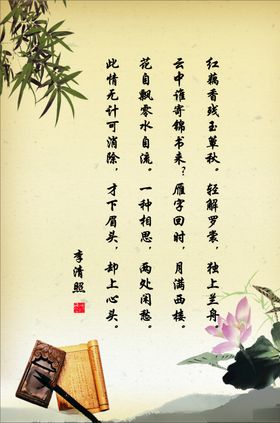 红藕香残玉簟秋。轻解罗裳，独上兰舟。
云中谁寄锦书来？雁字回时，月满西楼。
花自飘零水自流。一种相思，两处闲愁。
此情无计可消除，才下眉头，却上心头。
李清照